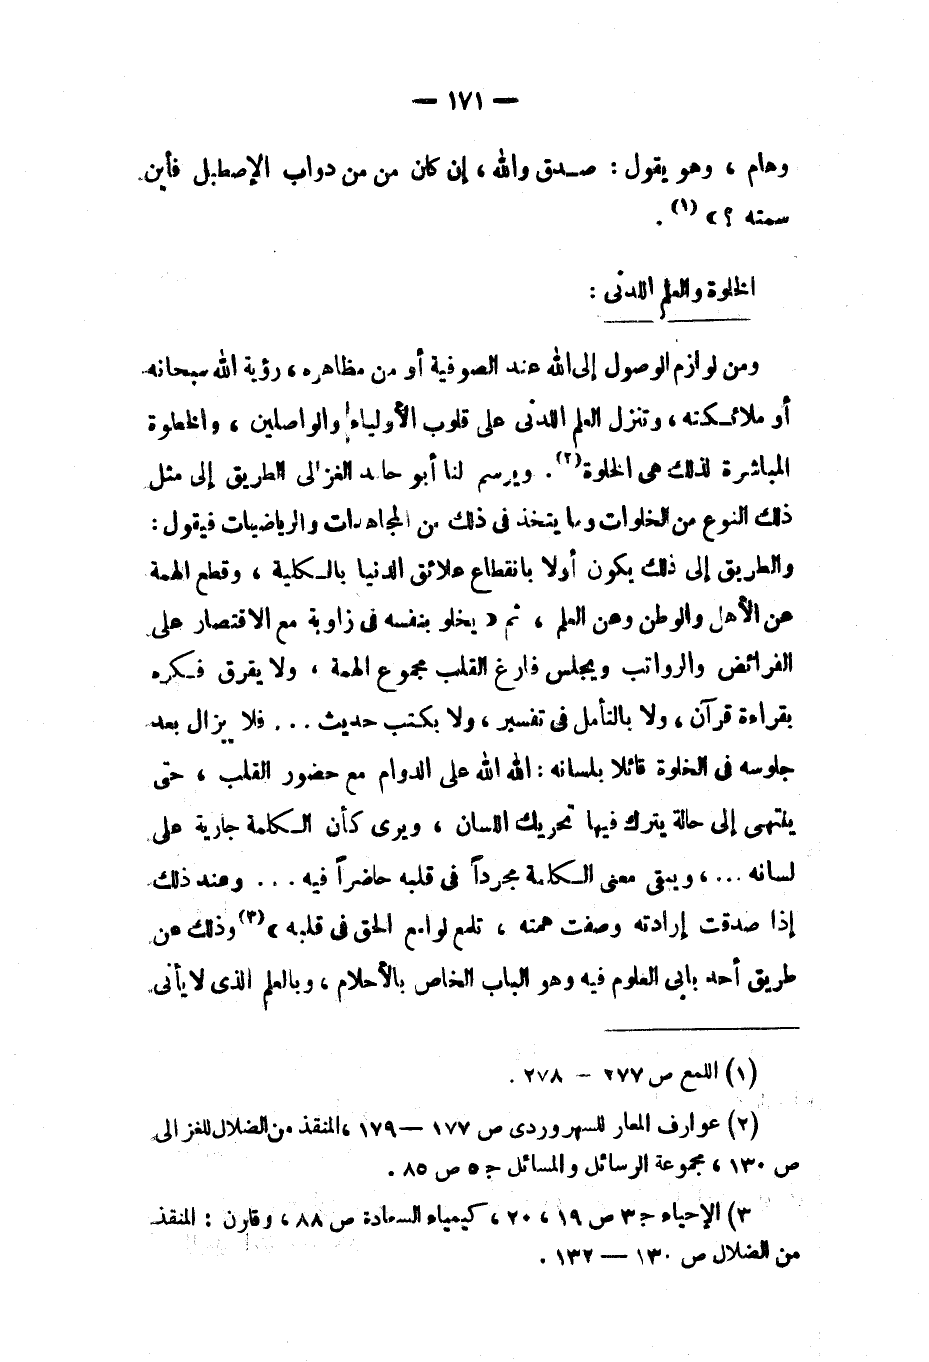 — ١٧١ —
وهام ، وهو يقول : صدق والله ، إن كان من من دواب الإصطبل فأين
سمته ؟ » (١) .
الخلوة والعلم اللدنى :
ومن لوازم الوصول إلى الله عند الصوفية أو من مظاهره ، رؤية الله سبحانه
أو ملائكته ، وتنزل العلم اللدنى على قلوب الأولياء والواصلين ، والخطوة
المباشرة لذلك هى الخلوة (٢) . ويرسم لنا أبو حامد الغزالى الطريق إلى مثل
ذلك النوع من الخلوات وما يتخذ فى ذلك من المجاهدات والرياضيات فيقول :
والطريق إلى ذلك يكون أولا بانقطاع علائق الدنيا بالكلية ، وقطع الهمة
عن الأهل والوطن وعن العلم ، ثم « يخلو بنفسه فى زاوية مع الاقتصار على
الفرائض والرواتب ويجلس فارغ القلب مجموع الهمة ، ولا يفرق فكره
بقراءة قرآن ، ولا بالتأمل فى تفسير ، ولا بكتب حديث ... . فلا يزال بعد
جلوسه فى الخلوة قائلا بلسانه : الله الله على الدوام مع حضور القلب ، حتى
ينتهى إلى حالة يترك فيها تحريك اللسان ، ويرى كأن الكلمة جارية على
لسانه ... ، ويبقى معنى الكلمة مجرداً فى قلبه حاضراً فيه ... وعند ذلك
إذا صدقت إرادته وصفت همته ، تلمع لوامع الحق فى قلبه » (٣) وذلك عن
طريق أحد بابى العلوم فيه وهو الباب الخاص بالأحلام ، وبالعلم الذى لا يأتى
(١) اللمع ص ٢٧٧ – ٢٧٨ .
(٢) عوارف المعار للسهروردى ص ١٧٧ — ١٧٩ ، المنقذ من الضلال للغزالى
ص ١٣٠ ، مجموعة الرسائل والمسائل ج٥ ص ٨٥ .
٣) الإحياء ج٣ ص ١٩ ، ٢٠ ، كيمياء السعادة ص ٨٨ ، وقارن : المنقذ
من الضلال ص ١٣٠ — ١٣٢ .